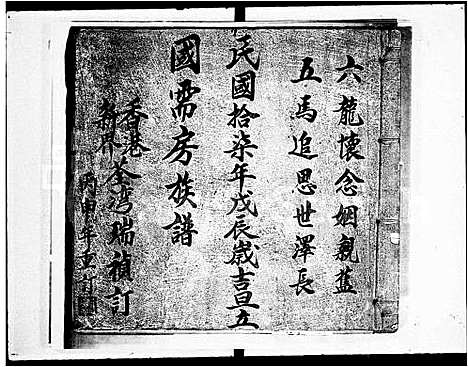 六龍懷念姻親藍
五馬追思世澤長
民國拾柒年戊辰歲吉旦立
國需房族譜
香港
新界
荃灣瑞禎訂
丙申年重訂